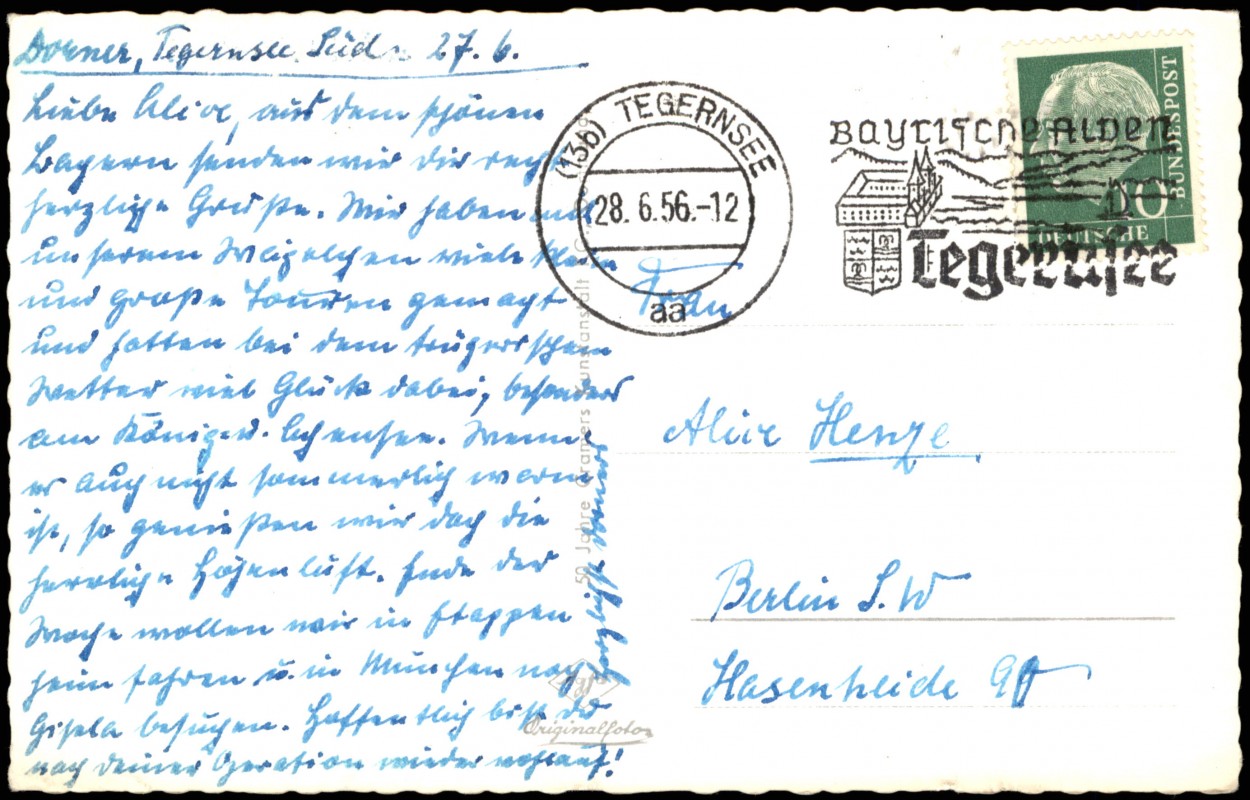 Dorner, Tegernsee Süd 27.6.
Liebe Alice, aus dem schönen
Bayern senden wir dir recht
herzliche Grüße. Wir haben mit
unserem Wägelchen viele kleine
und große Touren gemacht
und hatten bei dem trügerischem
Wetter viel Glück dabei, besonders
am König u. Achensee. Wenn
es auch nicht sommerlich warm
ist, so genießen wir doch die
herrliche Höhenluft. Ende der
Woche wollen wir in Etappen
heim fahren u. in München noch
Gisela besuchen. Hoffentlich bist du
nach deiner Operation wieder wohlauf!
Herzlichst Dorners
50 Jahre Cramers Kunstanstalt
Agfa
Originalfoto
(13b) TEGERNSEE
28.6.56.-12
aa
Bayrische Alpen
Tegernsee
DEUTSCHE
BUNDESPOST
10
Frau
Alice Henze
Berlin S.W
Hasenheide